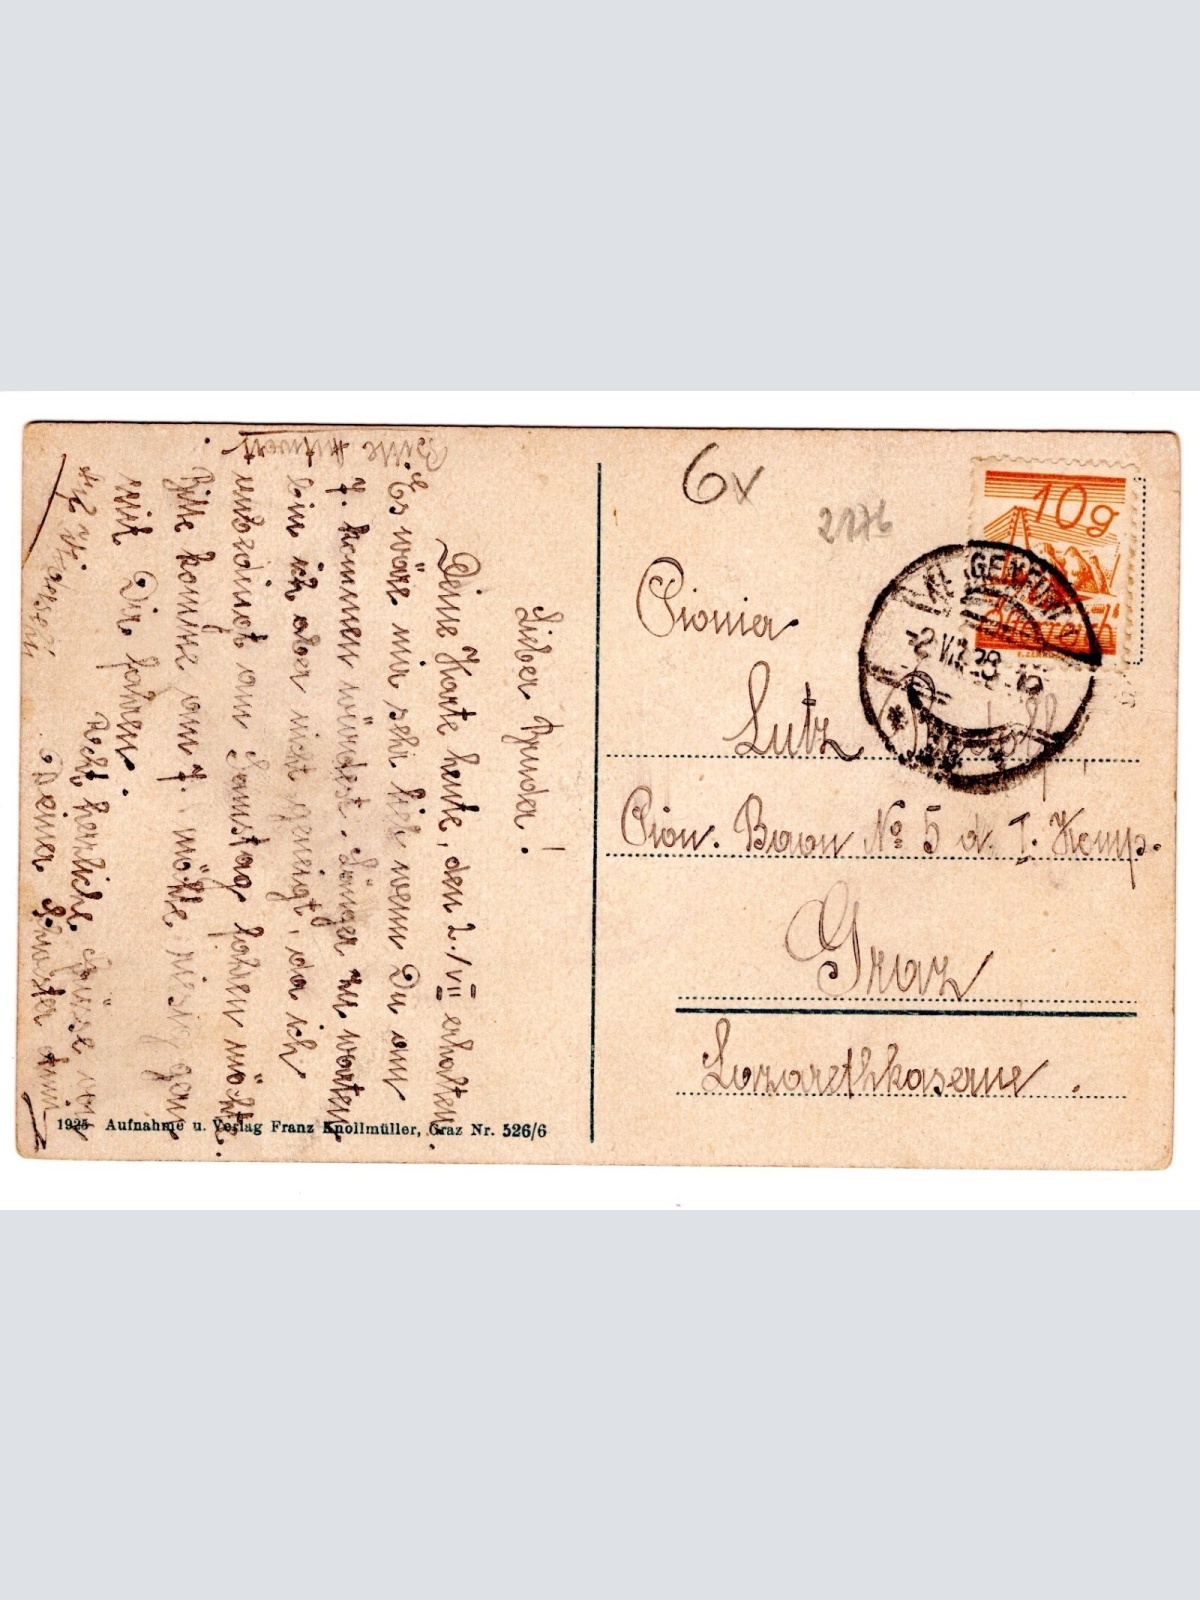 Lieber Bruder!
Deine Karte heute, den 2./VII erhalten.
Es wäre mir sehr lieb wenn Du am
7. kommen würdest. Länger zu warten
bin ich aber nicht geneigt, da ich
unbedingt am Samstag fahren möchte.
Bitte komme am 7. möchte riesig gern
mit Dir fahren.
Recht herzliche Grüsse von
Deiner Schwester
Bitte Antwort
1925 Aufnahme u. Verlag Franz Knollmüller, Graz Nr. 526/6
6v
2176
10g
KLAGENFURT
-2.VII.28
Pionier
Lutz
Pion. Baon No 5 d. I. Komp.
Graz
Lazarethkaserne.